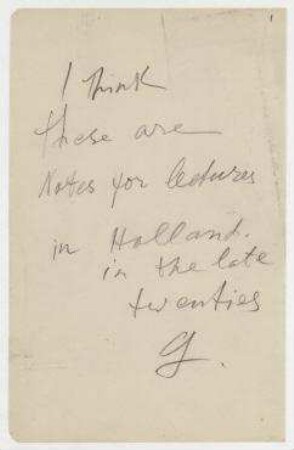 I think
these are
Notes for lectures
in Holland.
in the late
twenties
G.